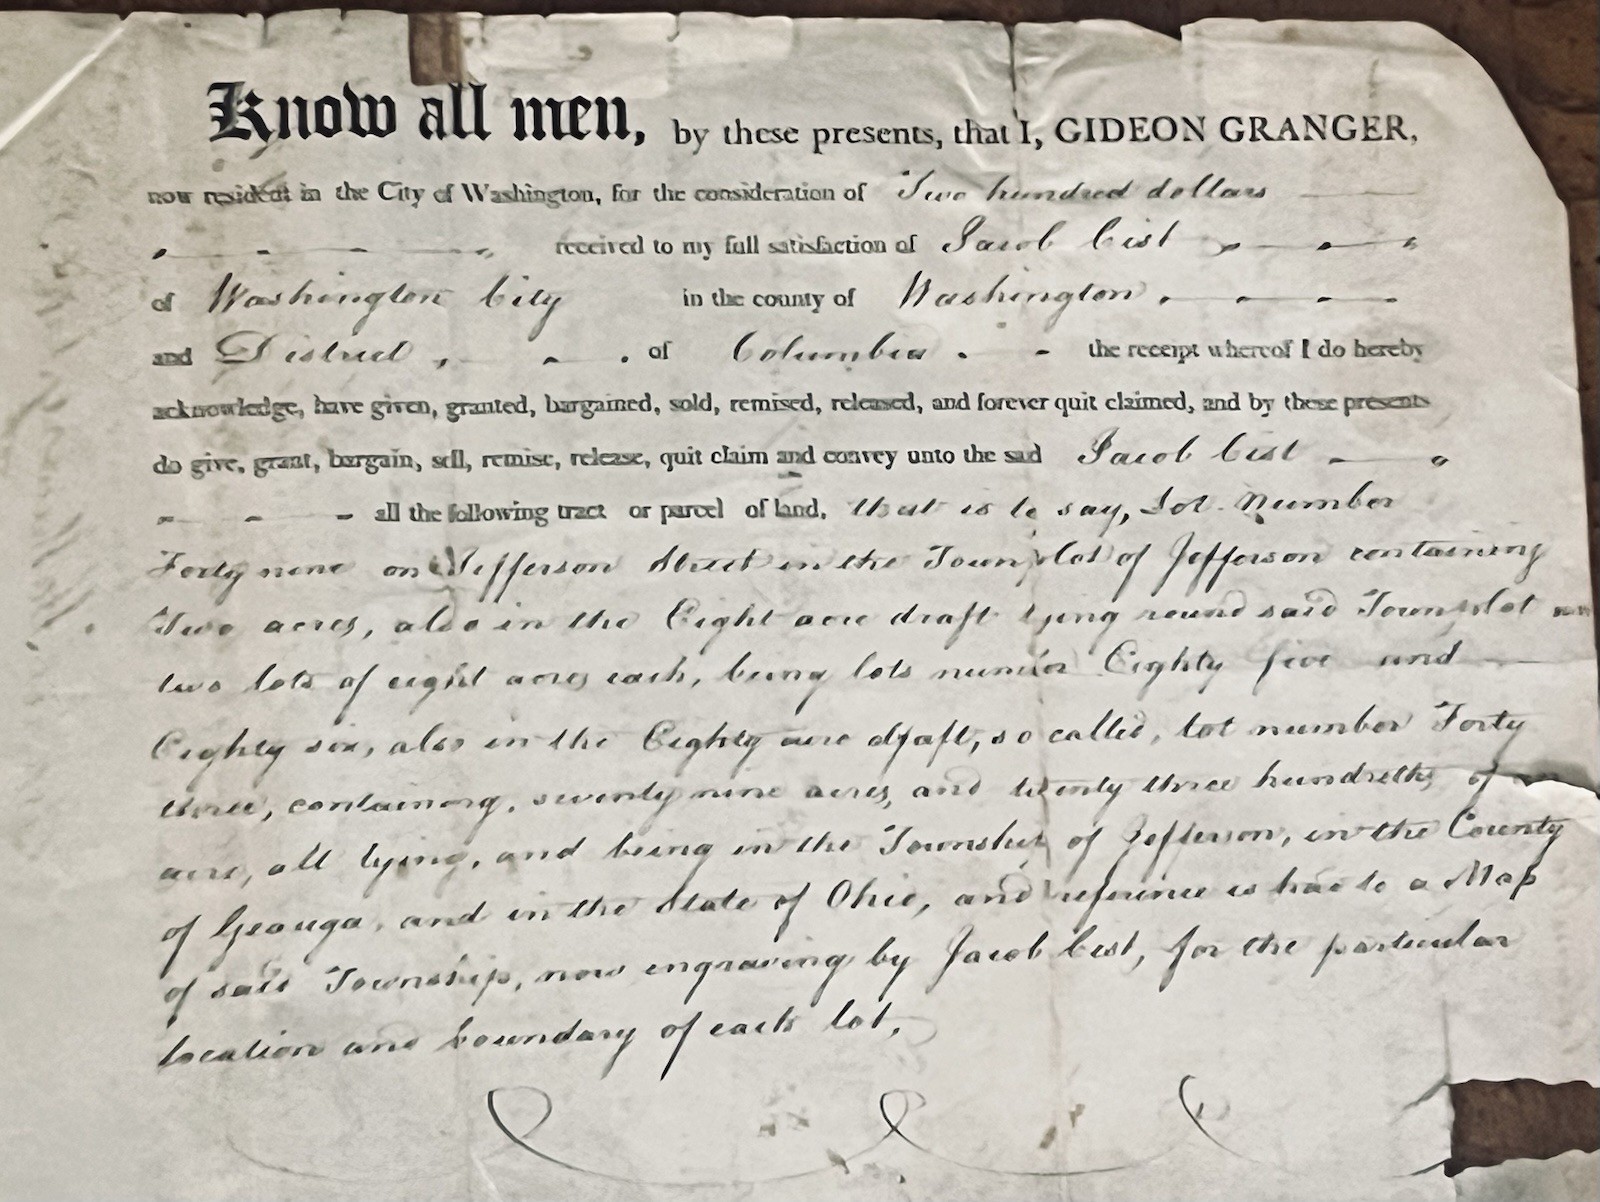 Know all men, by these presents, that I, GIDEON GRANGER,
now resident in the City of Washington, for the consideration of Two hundred dollars
received to my full satisfaction of Jacob Cist
of Washington City in the county of Washington,
and District, of Columbia the receipt whereof I do hereby
acknowledge, have given, granted, bargained, sold, remised, released, and forever quit claimed, and by these presents
do give, grant, bargain, sell, remise, release, quit claim and convey unto the said Jacob Cist
all the following tract or parcel of land, that is to say, Lot number
Forty nine on Jefferson Street in the Town plot of Jefferson containing
Two acres, also in the Eight acre draft lying round said Town plot
two lots of eight acres each, being lots number Eighty five and
Eighty six, also in the Eighty acre draft, so called, lot number Forty
three, containing, seventy nine acres, and twenty three hundredths of an
acre, all lying, and being in the Township of Jefferson, in the County
of Geauga, and in the State of Ohio, and reference is had to a Map
of said Township, now engraving by Jacob Cist, for the particular
location and boundary of each lot,